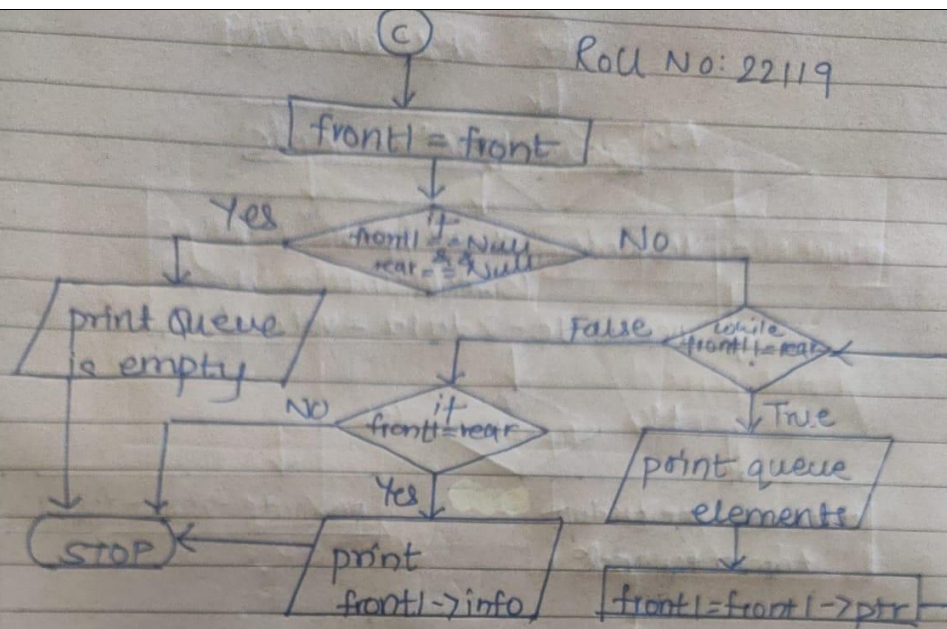 C
Roll No: 22119
front1 = front
if
front1 == Null
&&
rear == Null
Yes
NO
print Queue
is empty
while
front1!=rear
False
True
if
front1=rear
NO
Yes
print queue
elements
STOP
print
front1->info
front1=front1->ptr